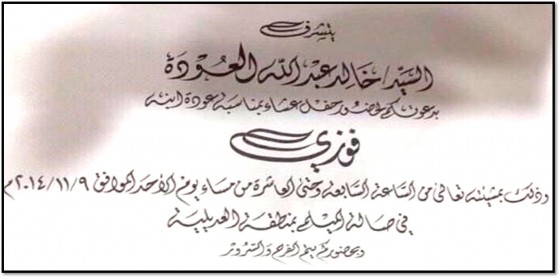 يتشرف
السيد/ خالد عبدالله العودة
بدعوتكم لحضور حفل عشاء بمناسبة عودة ابنه
فوزي
وذلك بمشيئته تعالى من الساعة السابعة وحتى العاشرة من مساء يوم الأحد الموافق ٢٠١٤/١١/٩م
في صالة الميلم بمنطقة العديلية
وبحضوركم يتم الفرح والسرور